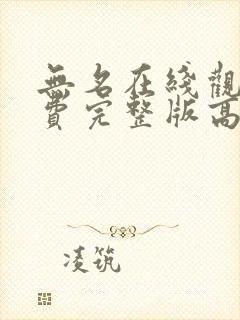 無名在綫觀
費完整版高
凌筑